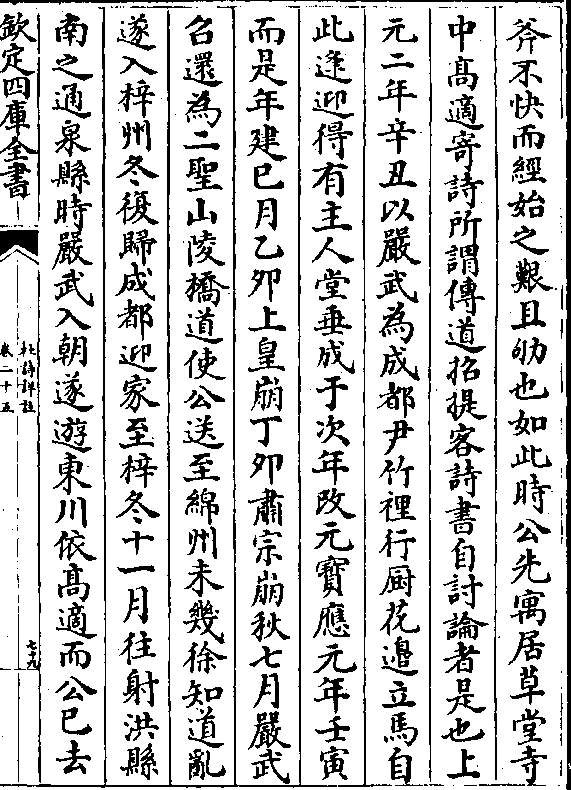 斧不快而經始之艱且劬也如此時公先寓居草堂寺
中髙適寄詩所謂傳道招提客詩書自討論者是也上
元二年辛丑以嚴武為成都尹竹裡行厨花邉立馬自
此逢迎得有主人堂垂成于次年改元寶應元年壬寅
而是年建巳月乙卯上皇崩丁卯肅宗崩秋七月嚴武
召還為二聖山陵橋道使公送至綿州未幾徐知道亂
遂入梓州冬復歸成都迎家至梓冬十一月往射洪縣
南之通泉縣時嚴武入朝遂遊東川依髙適而公已去
欽定四庫全書
杜詩詳註
卷二十五
七十九